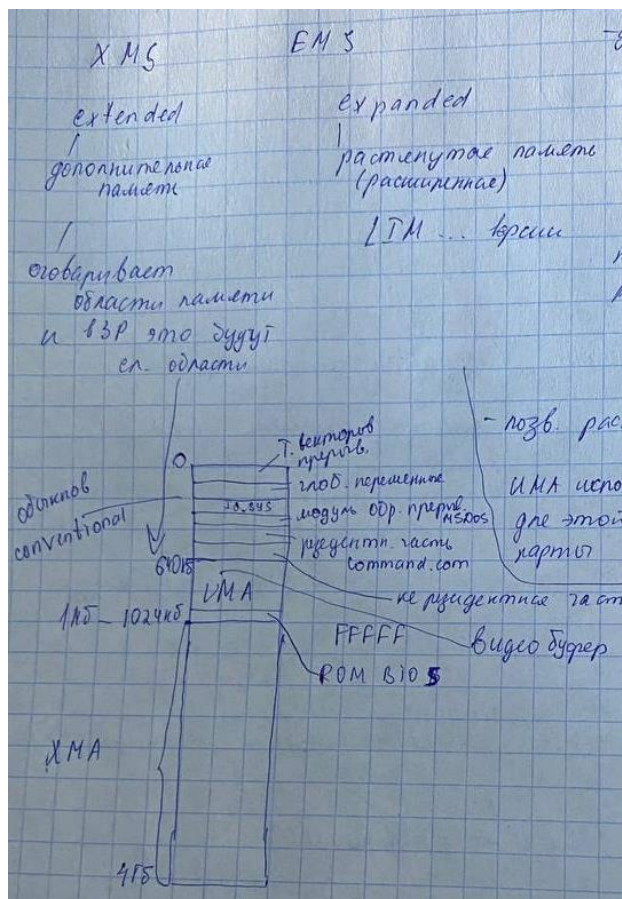 XMS
EMS
extended
дополнительная
память
оговаривает
области памяти
и в ЗР это будут
сл. области
expanded
растянутая память
(расширенная)
LIM ... версии
- позв. рас
UMA испо
для этой
карты
Т. векторов
прерыв.
0
глоб. переменные
IO.SYS
модуль обр. прерыв.
MSDOS
резидентн. часть
command.com
conventional
640кб
UMA
не резидентная част
1мб - 1024кб
FFFFF
видео буфер
ROM BIOS
XMA
4Гб